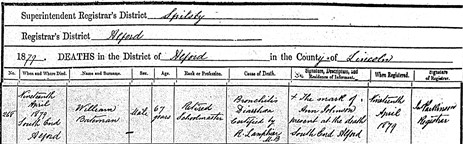 Superintendent Registrar's District Spilsby
Registrar's District Alford
1879. DEATHS in the District of Alford in the County of Lincoln
No. When and Where Died. Name and Surname. Sex. Age. Rank or Profession. Cause of Death. Signature, Description, and Residence of Informant. When Registered. Signature of Registrar.
Nineteenth April 1879 South End Alford
William Bateman
Male
67 years
Retired Schoolmaster
Bronchitis Diarrhœa Certified by R. M.B.
X The mark of Ann Johnson present at the death South End Alford
Nineteenth April 1879
Registrar